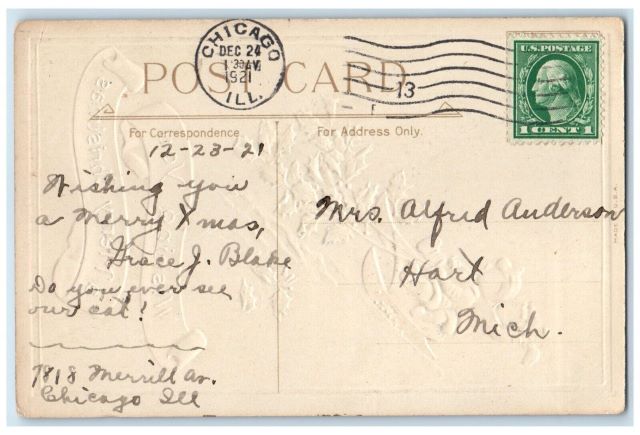 CHICAGO
DEC 24
1921
ILL.
13
U.S. POSTAGE
1 CENT 1
POST CARD
For Correspondence.
For Address Only.
12-23-21
Wishing you
a Merry Xmas,
Grace J. Blake
Do you ever see
our cat!
7818 Merrill Av.
Chicago Ill
Mrs. Alfred Anderson
Hart
Mich.